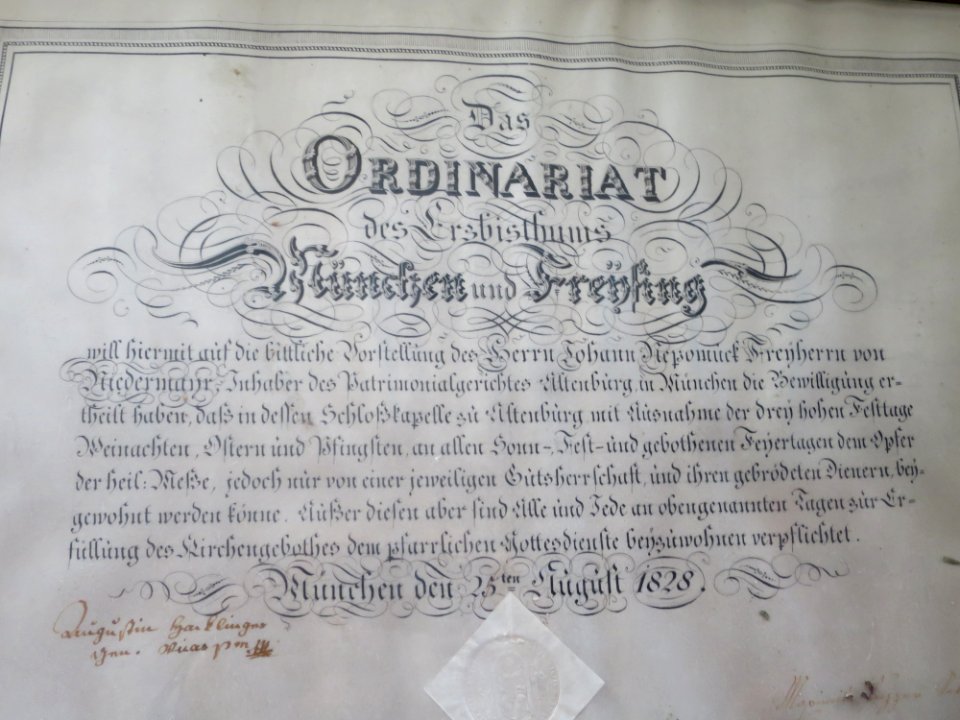 Das
ORDINARIAT
des Erzbisthums
München und Freÿsing
will hiermit auf die bittliche Vorstellung des Herrn Johann Nepomuck Freyherrn von
Niedermayr, Inhaber des Patrimonialgerichtes Altenburg, in München die Bewilligung er-
theilt haben, daß in dessen Schloßkapelle zu Altenburg mit Ausnahme der drey hohen Festtage
Weinachten, Ostern und Pfingsten, an allen Sonn-, Fest- und gebothenen Feyertagen dem Opfer
der heil: Meße, jedoch nur von einer jeweiligen Gutsherrschaft, und ihren gebrödeten Dienern, bey-
gewohnt werden könne. Außer diesen aber sind Alle und Jede an obengenannten Tagen zur Er-
füllung des Kirchengebothes dem pfarrlichen Gottesdienste beyzuwohnen verpflichtet.
München den 25ten August 1828.
Augustin Hacklinger
Gen.